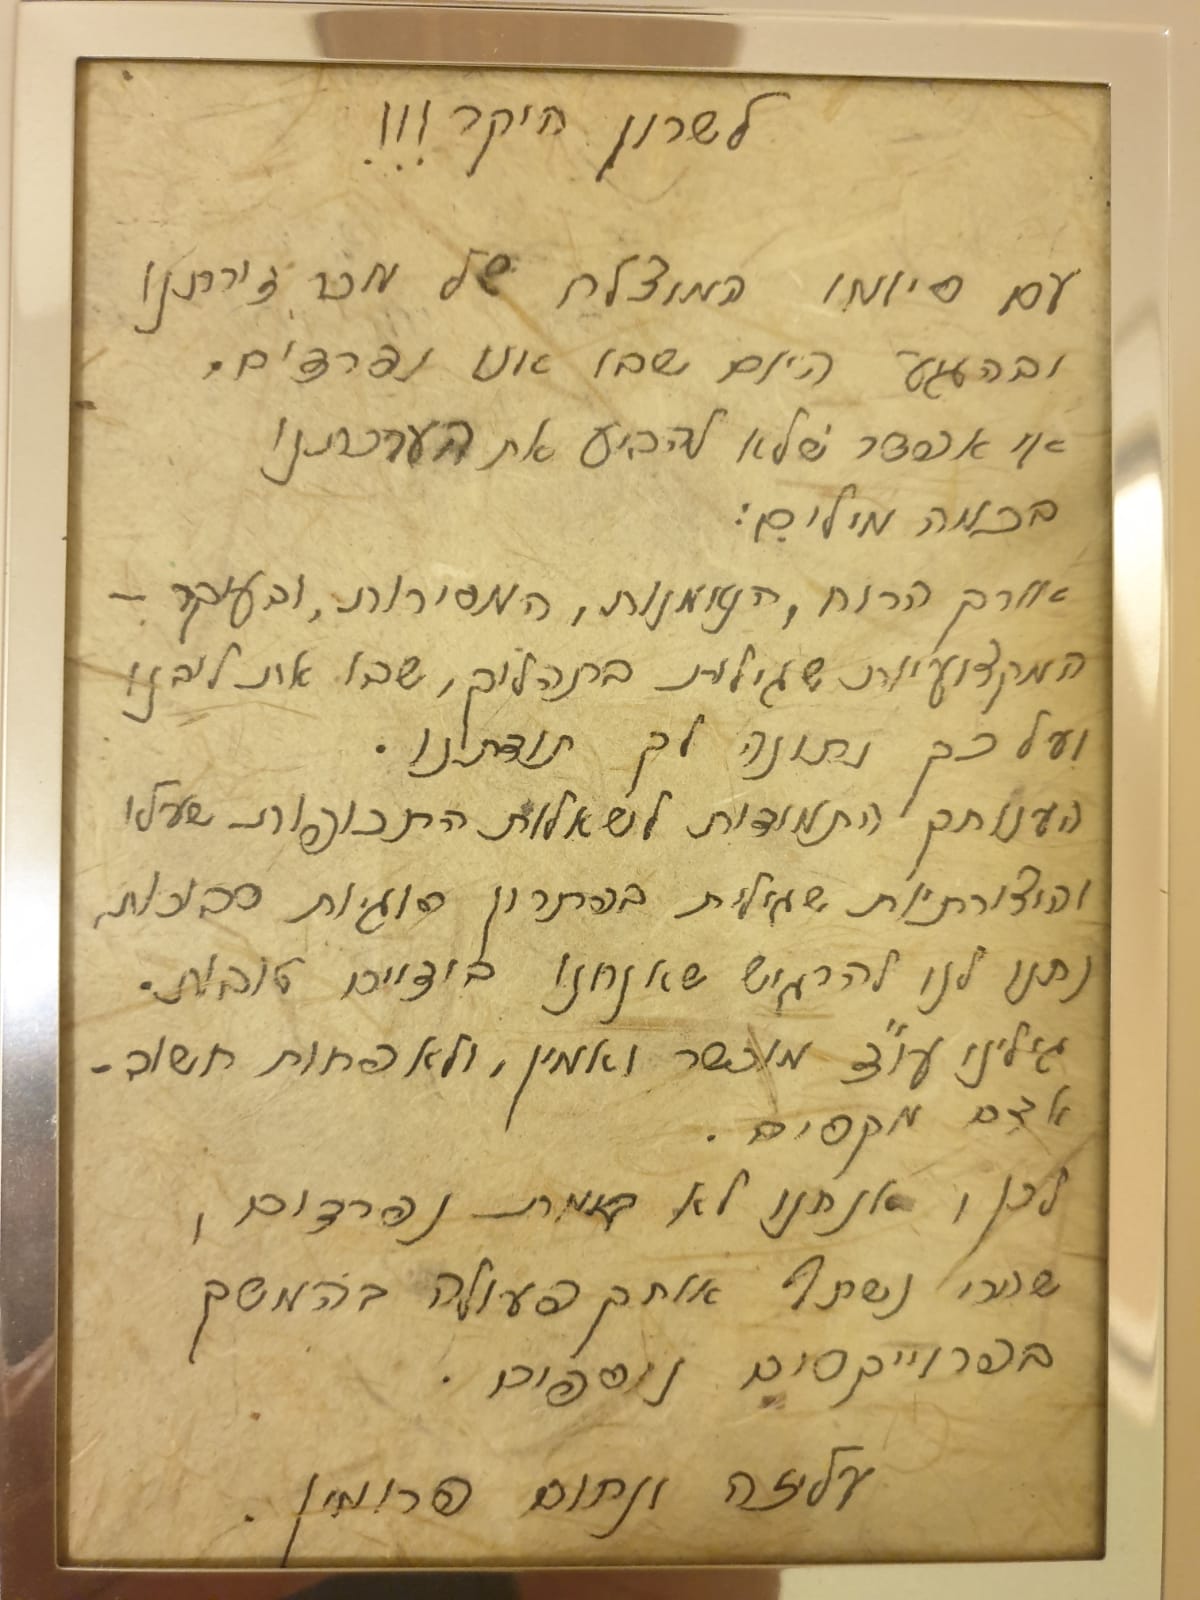 לשרון היקר!!!
עם סיומו המוצלח של מכר דירתנו
ובהגיע היום שבו אנו נפרדים.
אי אפשר שלא להביע את הערכתנו
בכמה מילים:
אורך הרוח, הנאמנות, המסירות, ובעיקר -
המקצועיות שגילית בתהליך, שבו את ליבנו
ועל כך נתונה לך תודתנו.
הענותך התמידית לשאלות התכופות שעלו
והיצירתיות שגילית בפתרון סוגיות סבוכות,
נתנו לנו להרגיש שאנחנו בידיים טובות.
גילינו עו"ד מוכשר ואמין, ולא פחות חשוב -
אדם מקסים.
לכן, אנחנו לא באמת נפרדים,
שהרי נשתף אתך פעולה בהמשך
בפרוייקטים נוספים.
עליזה ונחום פרומין.